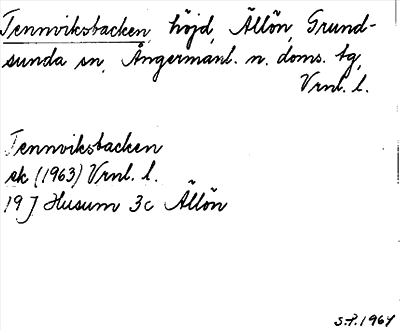 Tennviksbacken, höjd, Ällön, Grund-
sunda sn, Ångermanl. n. doms. tg,
Vrnl. l.
Tennviksbacken
ek (1963) Vrnl. l.
19 J Husum 3c Ällön
S.P. 1967